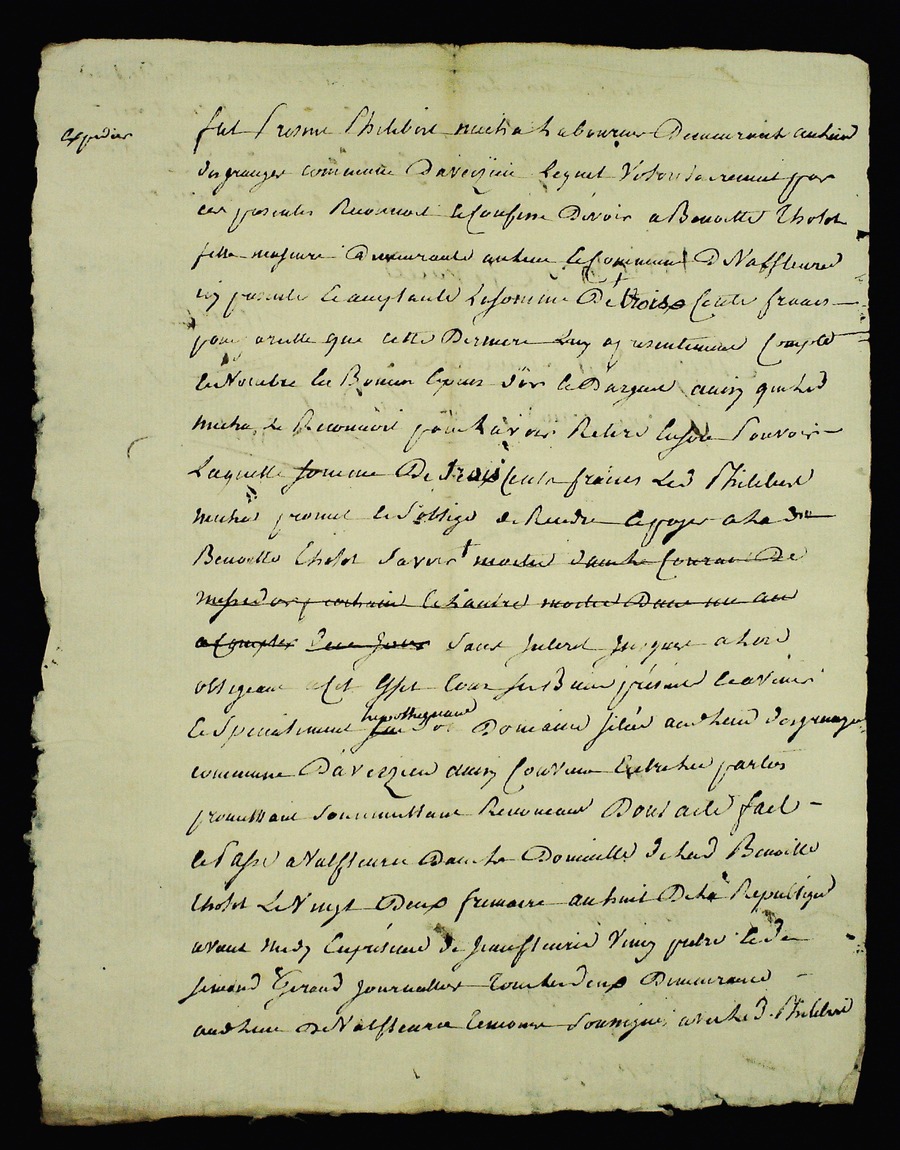 expedier
fut presnt Philibert micha Laboureur Demeurant au lieu
des granges commune D'aveizieu lequel Volontairement par
ces presentes Reconnoit et Confesse Devoir a Benoitte Tholot
fille majeure Demeurante au lieu et Commune De Valfleurie
icy presente et acceptante La somme De trois Cents francs
pour que cette Derniere Luy a presentement Compté
et Nombré En Bonnes Especes D'or et D'argent ainsy que led
micha le Reconnoit pour L'avoir Retiré En son Pouvoir
Laquelle somme De trois Cents francs Led Philibert
micha promet et S'oblige de Rendre et payer a La dte
Benoitte Tholot Savoir moitié dans le Courant De
messidor prochain et L'autre moitié Dans un an
a Compter De ce Jour Sans Interet Jusques a Lors
obligeant a Cet Effet Tous ses Biens présents et avenirs
et Specialement hypothequant son Domaine situé audt lieu des granges
commune D'aveizieu ainsy Convenu Entre les parties
promettant Soummettant Renonceant Dont acte fait
et Passé a Valfleurie Dans le Domicille de lad Benoitte
Tholot Le Vingt Deux frimaire an huit De la République
avant midy En présence de Jean fleurie Viney et de
simond Giraud Journallier Tous les deux Demeurant
audt lieu De Valfleurie Temoins Soussignés avec led. Philibert